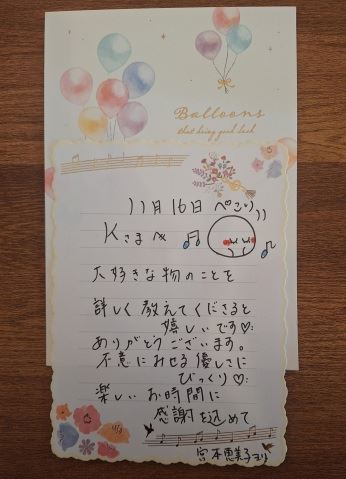 Balloons
that bring good luck
11月16日 ぺこり
Kさまへ
大好きな物のことを
詳しく教えてくださると
嬉しいです♡
ありがとうございます。
不意にみせる優しさに
びっくり♡
楽しいお時間に
感謝を込めて
宮本恵美子より